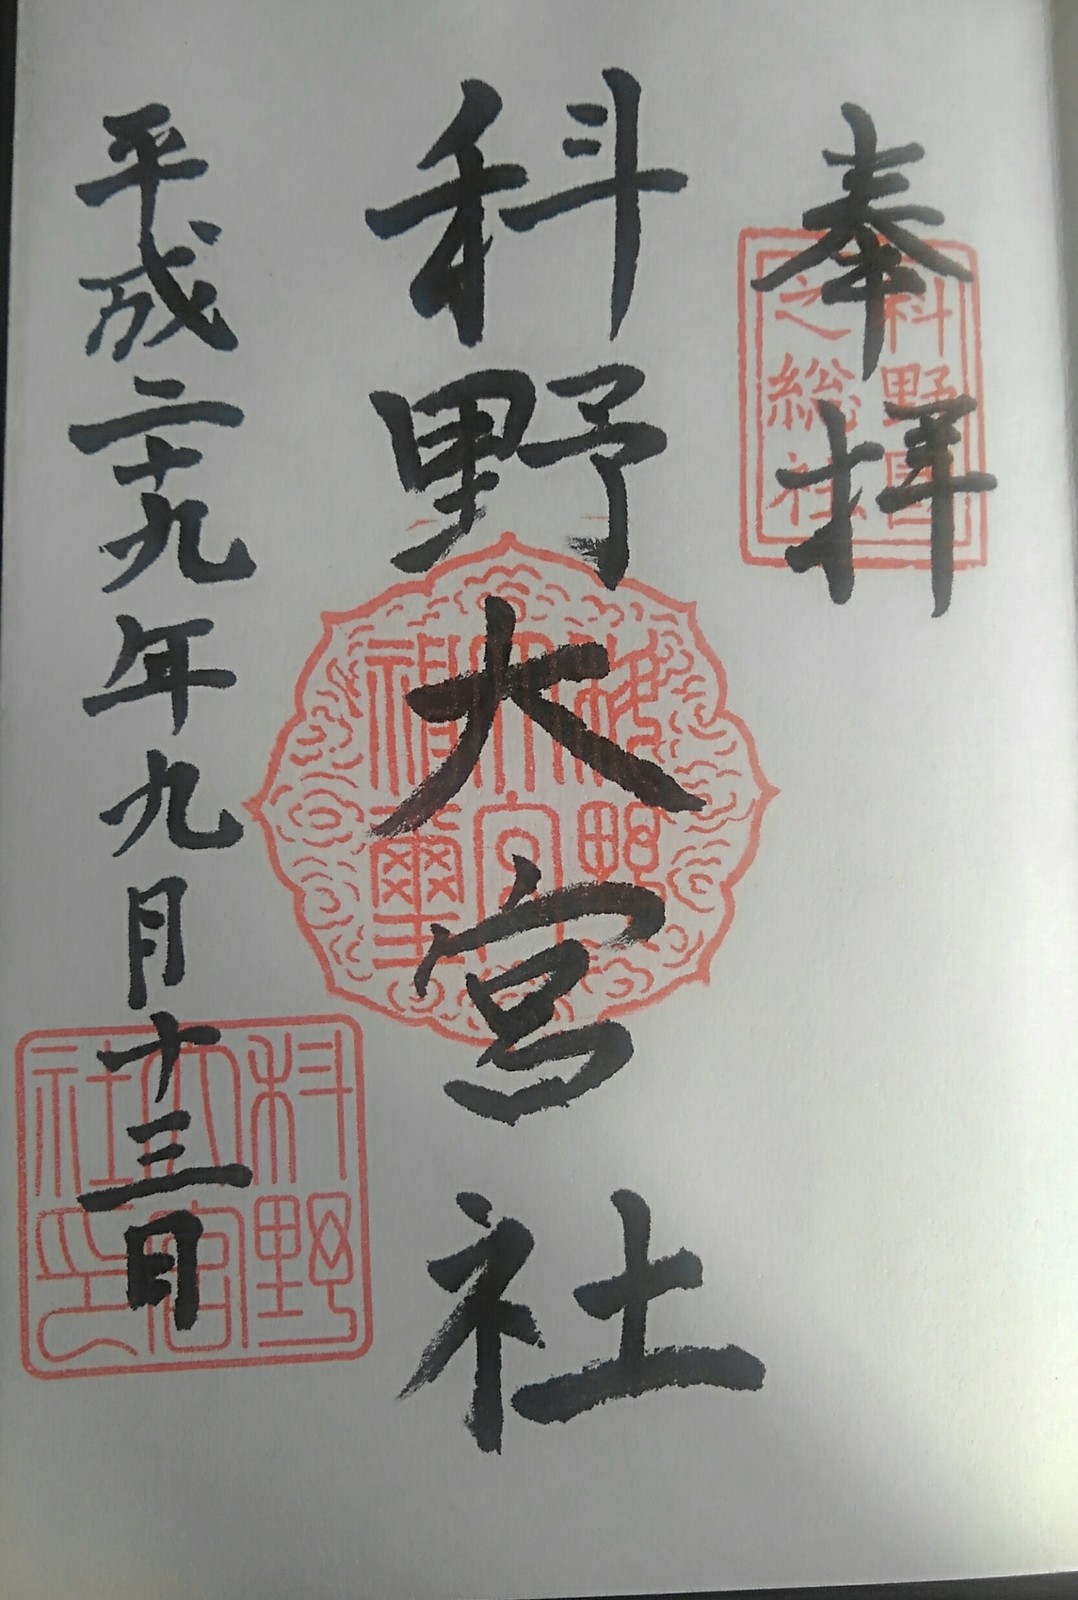 奉拝
科野國
之総社
科野大宮社
平成二十九年九月十三日
科野
大宮
社印